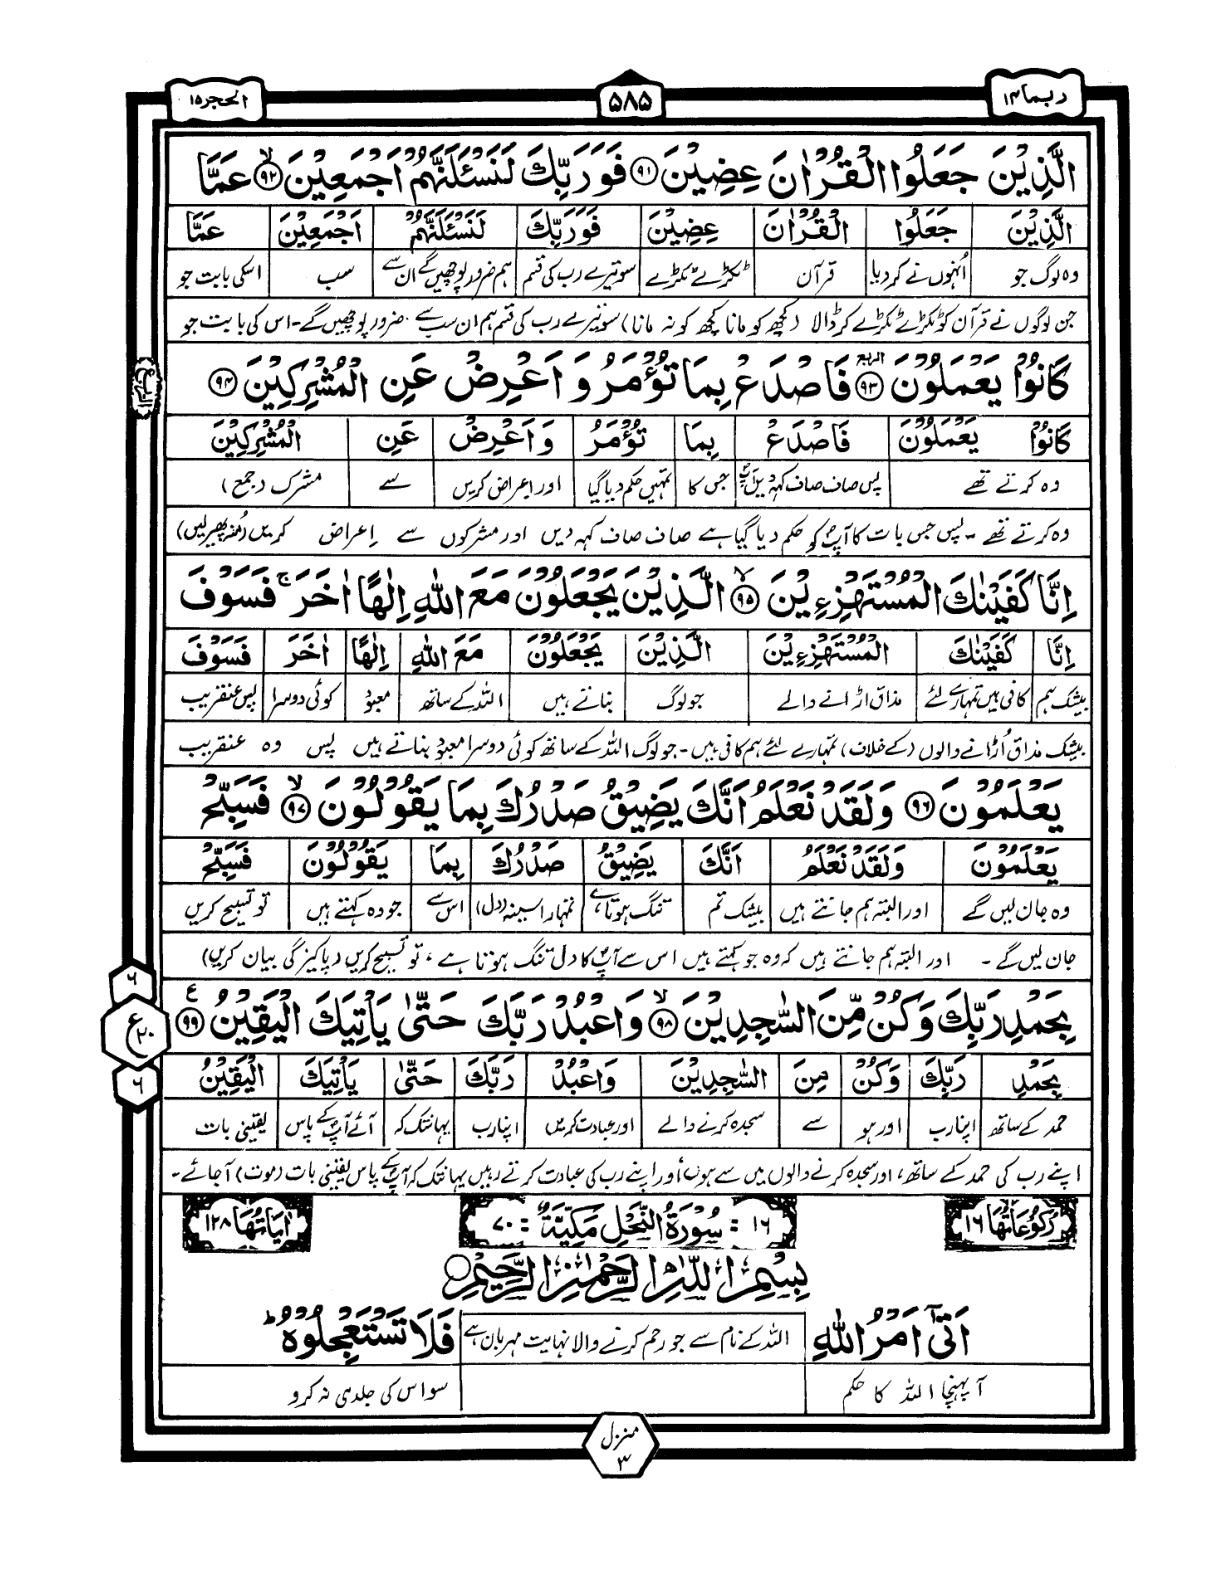 ربما ١٤
۵۸۵
الحجر ١۵
الَّذِيْنَ جَعَلُوا الْقُرْاٰنَ عِضِيْنَ ﴿۹۱﴾ فَوَرَبِّكَ لَنَسْـَٔلَنَّهُمْ اَجْمَعِيْنَ ﴿۹۲﴾ۙ عَمَّا
الَّذِيْنَ جَعَلُوا الْقُرْاٰنَ عِضِيْنَ فَوَرَبِّكَ لَنَسْـَٔلَنَّهُمْ اَجْمَعِيْنَ عَمَّا
وہ لوگ جو اُنہوں نے کردیا قرآن ٹکڑے ٹکڑے سو تیرے رب کی قسم ہم ضرور پوچھیں گے ان سے سب اسکی بابت جو
جن لوگوں نے قرآن کو ٹکڑے ٹکڑے کر ڈالا (کچھ کو مانا کچھ کو نہ مانا) سو تیرے رب کی قسم ہم ان سب سے ضرور پوچھیں گے۔ اس کی بابت جو
كَانُوْا يَعْمَلُوْنَ ﴿۹۳﴾ فَاصْدَعْ بِمَا تُؤْمَرُ وَ اَعْرِضْ عَنِ الْمُشْرِكِيْنَ ﴿۹۴﴾
كَانُوْا يَعْمَلُوْنَ فَاصْدَعْ بِمَا تُؤْمَرُ وَ اَعْرِضْ عَنِ الْمُشْرِكِيْنَ
وہ کرتے تھے پس صاف صاف کہہ دیں آپؐ جس کا تمہیں حکم دیا گیا اور اعراض کریں سے مشرک (جمع)
وہ کرتے تھے۔ پس جس بات کا آپؐ کو حکم دیا گیا ہے صاف صاف کہہ دیں اور مشرکوں سے اعراض کریں (منہ پھیر لیں)
اِنَّا كَفَيْنٰكَ الْمُسْتَهْزِءِيْنَ ﴿۹۵﴾ۙ الَّذِيْنَ يَجْعَلُوْنَ مَعَ اللهِ اِلٰهًا اٰخَرَ ۚ فَسَوْفَ
اِنَّا كَفَيْنٰكَ الْمُسْتَهْزِءِيْنَ الَّذِيْنَ يَجْعَلُوْنَ مَعَ اللهِ اِلٰهًا اٰخَرَ فَسَوْفَ
بیشک ہم کافی ہیں تمہارے لئے مذاق اڑانے والے جو لوگ بناتے ہیں اللہ کے ساتھ معبود کوئی دوسرا پس عنقریب
بیشک مذاق اُڑانے والوں (کے خلاف) تمہارے لئے ہم کافی ہیں۔ جو لوگ اللہ کے ساتھ کوئی دوسرا معبود بناتے ہیں پس وہ عنقریب
يَعْلَمُوْنَ ﴿۹۶﴾ وَلَقَدْ نَعْلَمُ اَنَّكَ يَضِيْقُ صَدْرُكَ بِمَا يَقُوْلُوْنَ ﴿۹۷﴾ۙ فَسَبِّحْ
يَعْلَمُوْنَ وَلَقَدْ نَعْلَمُ اَنَّكَ يَضِيْقُ صَدْرُكَ بِمَا يَقُوْلُوْنَ فَسَبِّحْ
وہ جان لیں گے اور البتہ ہم جانتے ہیں بیشک تم تنگ ہوتا ہے تمہارا سینہ (دل) اس سے جو وہ کہتے ہیں تو تسبیح کریں
جان لیں گے۔ اور البتہ ہم جانتے ہیں کہ وہ جو کہتے ہیں اس سے آپؐ کا دل تنگ ہوتا ہے، تو تسبیح کریں (پاکیزگی بیان کریں)
بِحَمْدِ رَبِّكَ وَكُنْ مِّنَ السّٰجِدِيْنَ ﴿۹۸﴾ۙ وَاعْبُدْ رَبَّكَ حَتّٰى يَاْتِيَكَ الْيَقِيْنُ ﴿۹۹﴾
بِحَمْدِ رَبِّكَ وَكُنْ مِنَ السّٰجِدِيْنَ وَاعْبُدْ رَبَّكَ حَتّٰى يَاْتِيَكَ الْيَقِيْنُ
حمد کے ساتھ اپنا رب اور ہو سے سجدہ کرنے والے اور عبادت کریں اپنا رب یہانتک کہ آئے آپؐ کے پاس یقینی بات
اپنے رب کی حمد کے ساتھ، اور سجدہ کرنے والوں میں سے ہوں، اور اپنے رب کی عبادت کرتے رہیں یہانتک کہ آپؐ کے پاس یقینی بات (موت) آجائے۔
۶
ع ۲۰
۶
رُكُوْعَاتُهَا ١٦
١٦ : سُوْرَةُ النَّحْلِ مَكِّيَّةٌ : ٧٠
اٰيَاتُهَا ١٢٨
بِسْمِ اللهِ الرَّحْمٰنِ الرَّحِيْمِ
اَتٰۤى اَمْرُ اللهِ اللہ کے نام سے جو رحم کرنے والا نہایت مہربان ہے فَلَا تَسْتَعْجِلُوْهُ ؕ
آ پہنچا اللہ کا حکم سو اس کی جلدی نہ کرو
منزل ۳